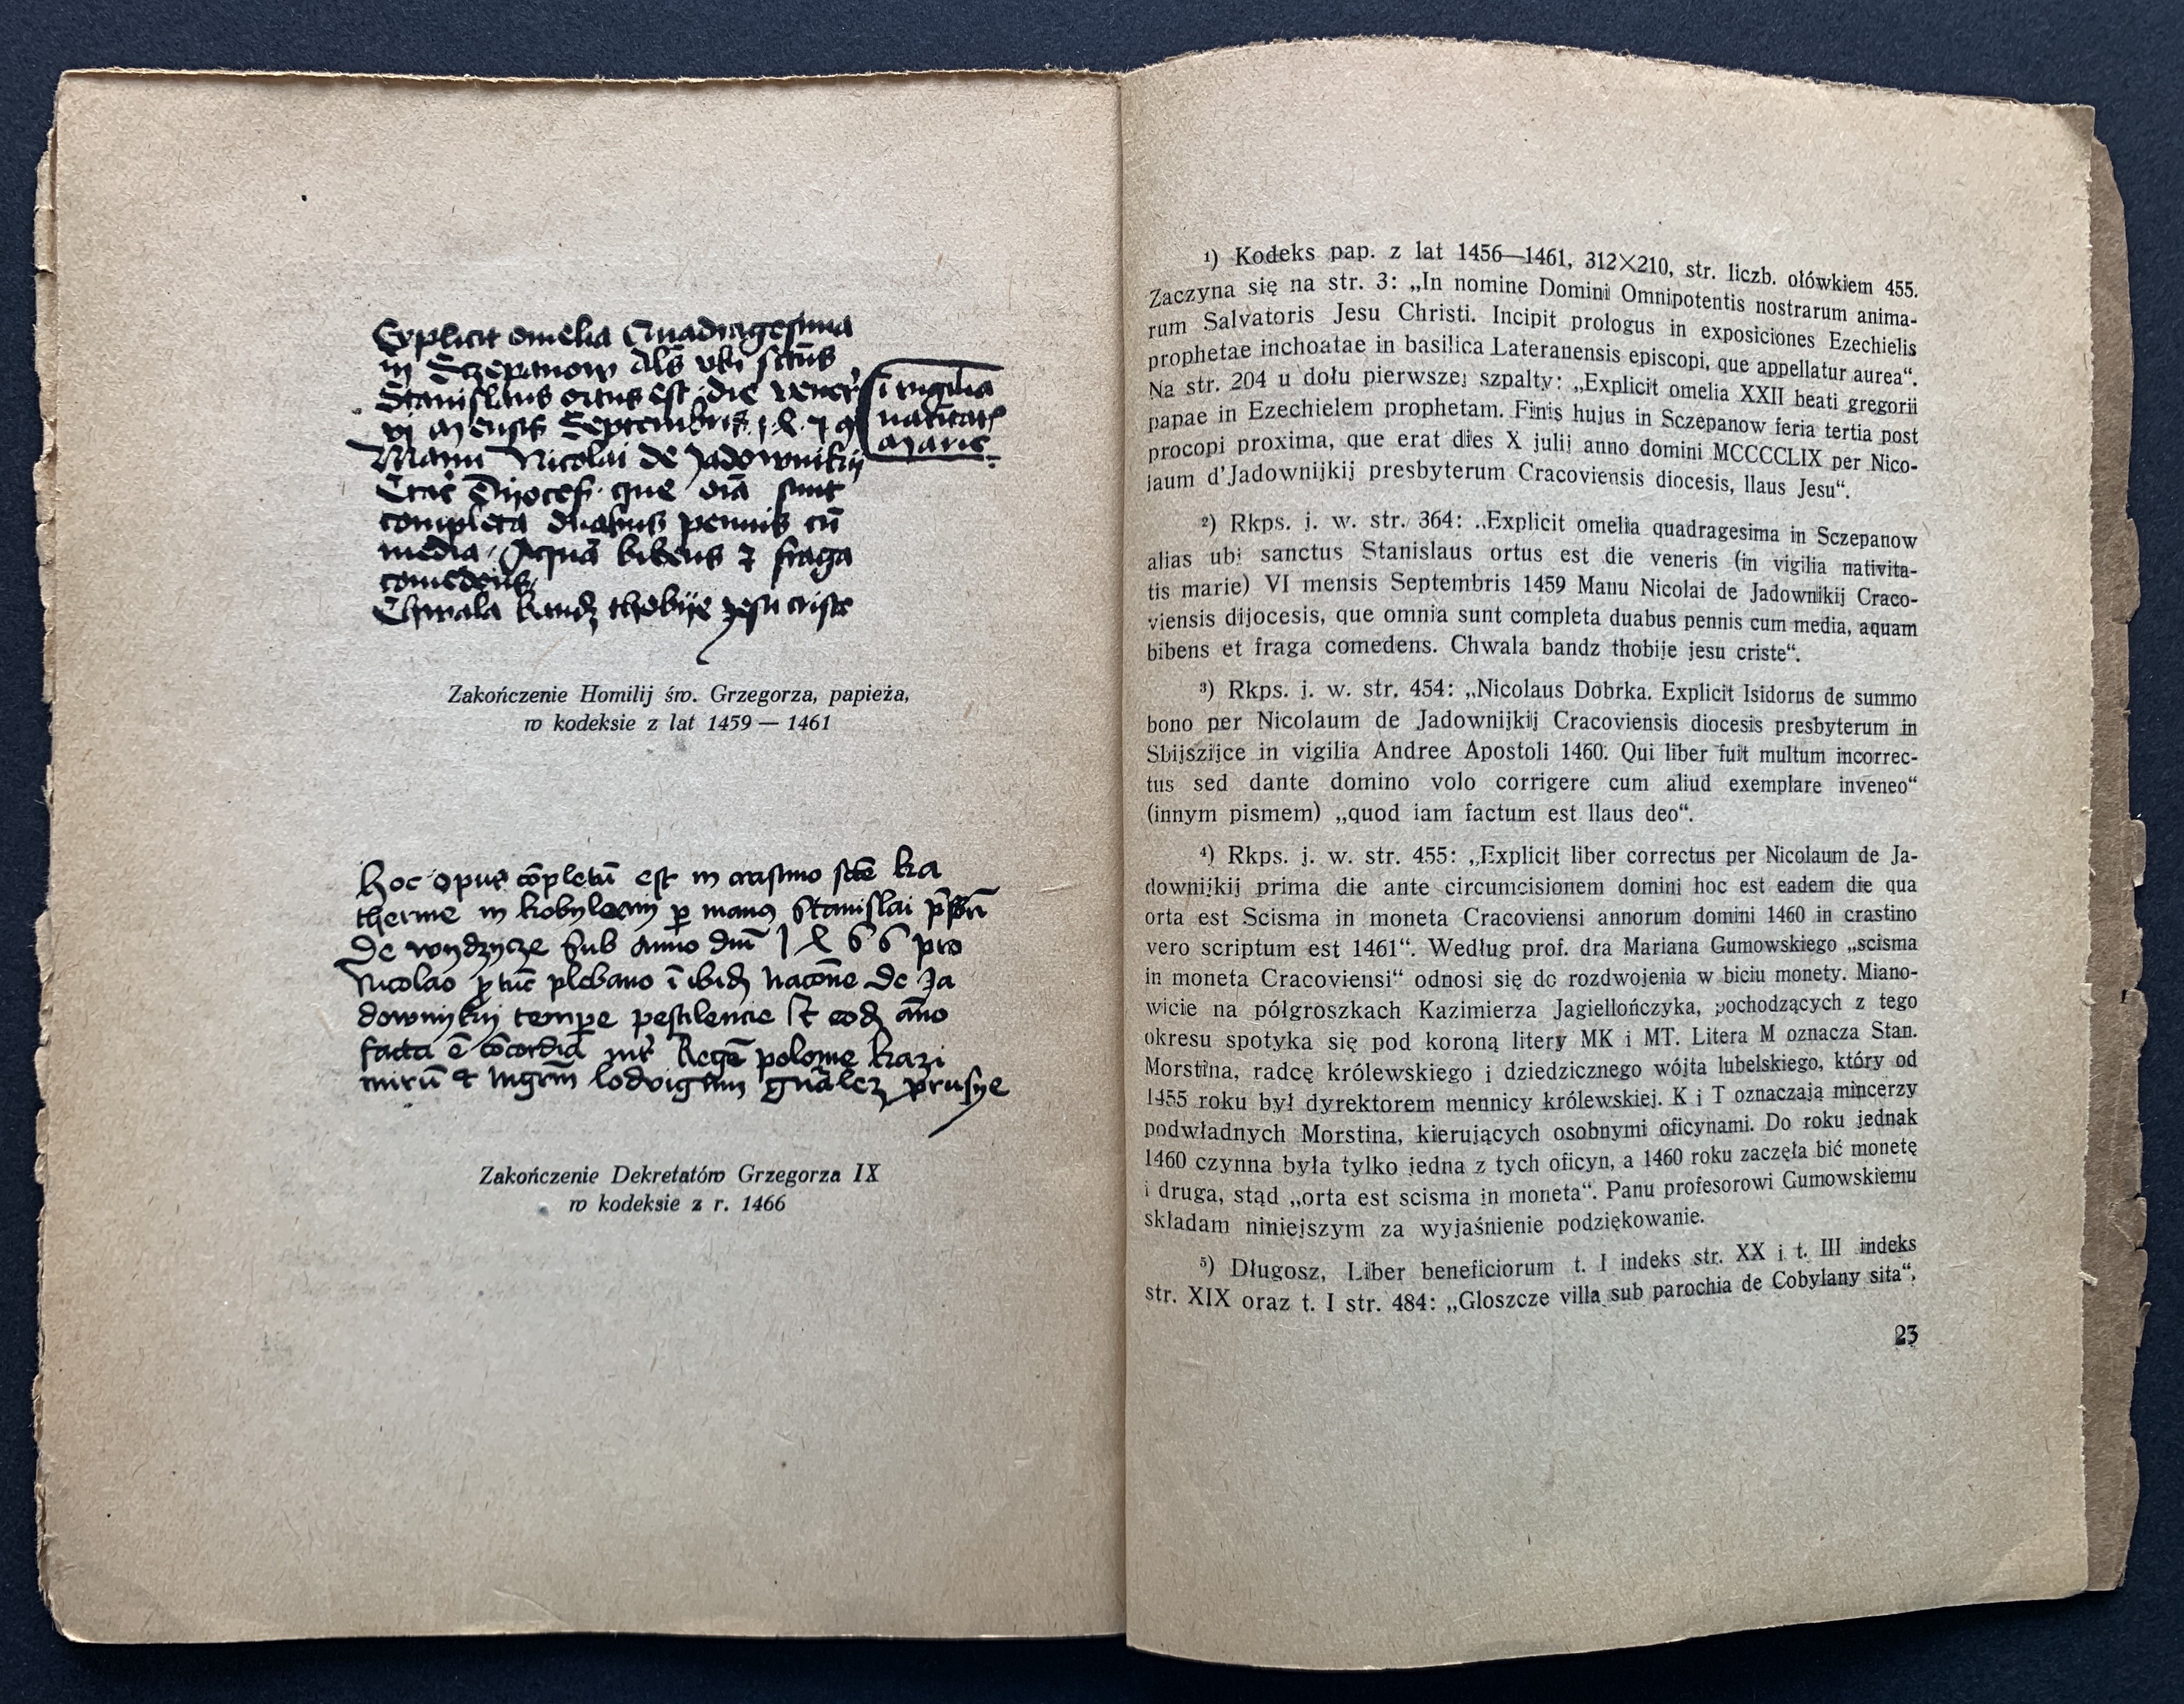 Explicit omelia Quadragesima
in Sczepanow als vbi sctus
Stanislaus ortus est die veneris
i vigilia
natitat
marie
vi mensis Septembris
Manu Nicolai de Jadownikij
Crac dijocesis que oīa sunt
completa duabus pennis cū
media Aquā bibens et fraga
comedens
Chwala bandz thobije jesu criste
Zakończenie Homilij św. Grzegorza, papieża,
w kodeksie z lat 1459 — 1461
hoc opus cōpletū est in crastino scte ka
therine in kobyleom p manus Stanislai
de wydzycze sub anno dm 1466 pro
Nicolao p tūc plebano ī ibidem nacōne de Ja
downykij tempe pestilencie et eodem āno
facta ē cōcordia int Regē polonie kazi
mirū et mgrm lodvigum gnālez prusye
Zakończenie Dekretatów Grzegorza IX
w kodeksie z r. 1466
¹) Kodeks pap. z lat 1456—1461, 312×210, str. liczb. ołówkiem 455.
Zaczyna się na str. 3: „In nomine Domini Omnipotentis nostrarum anima-
rum Salvatoris Jesu Christi. Incipit prologus in exposiciones Ezechielis
prophetae inchoatae in basilica Lateranensis episcopi, que appellatur aurea“.
Na str. 204 u dołu pierwszej szpalty: „Explicit omelia XXII beati gregorii
papae in Ezechielem prophetam. Finis hujus in Sczepanow feria tertia post
procopi proxima, que erat dies X julij anno domini MCCCCLIX per Nico-
laum d'Jadownijkij presbyterum Cracoviensis diocesis, llaus Jesu“.
²) Rkps. j. w. str. 364: „Explicit omelia quadragesima in Sczepanow
alias ubi sanctus Stanislaus ortus est die veneris (in vigilia nativita-
tis marie) VI mensis Septembris 1459 Manu Nicolai de Jadownikij Craco-
viensis dijocesis, que omnia sunt completa duabus pennis cum media, aquam
bibens et fraga comedens. Chwala bandz thobije jesu criste“.
³) Rkps. j. w. str. 454: „Nicolaus Dobrka. Explicit Isidorus de summo
bono per Nicolaum de Jadownijkij Cracoviensis diocesis presbyterum in
Sbijszijce in vigilia Andree Apostoli 1460. Qui liber fuit multum incorrec-
tus sed dante domino volo corrigere cum aliud exemplare inveneo“
(innym pismem) „quod iam factum est llaus deo“.
⁴) Rkps. j. w. str. 455: „Explicit liber correctus per Nicolaum de Ja-
downijkij prima die ante circumcisionem domini hoc est eadem die qua
orta est Scisma in moneta Cracoviensi annorum domini 1460 in crastino
vero scriptum est 1461“. Według prof. dra Mariana Gumowskiego „scisma
in moneta Cracoviensi“ odnosi się do rozdwojenia w biciu monety. Miano-
wicie na półgroszkach Kazimierza Jagiellończyka, pochodzących z tego
okresu spotyka się pod koroną litery MK i MT. Litera M oznacza Stan.
Morstina, radcę królewskiego i dziedzicznego wójta lubelskiego, który od
1455 roku był dyrektorem mennicy królewskiej. K i T oznaczają mincerzy
podwładnych Morstina, kierujących osobnymi oficynami. Do roku jednak
1460 czynna była tylko jedna z tych oficyn, a 1460 roku zaczęła bić monetę
i druga, stąd „orta est scisma in moneta“. Panu profesorowi Gumowskiemu
składam niniejszym za wyjaśnienie podziękowanie.
⁵) Długosz, Liber beneficiorum t. I indeks str. XX i t. III indeks
str. XIX oraz t. I str. 484: „Gloszcze villa sub parochia de Cobylany sita“,
23